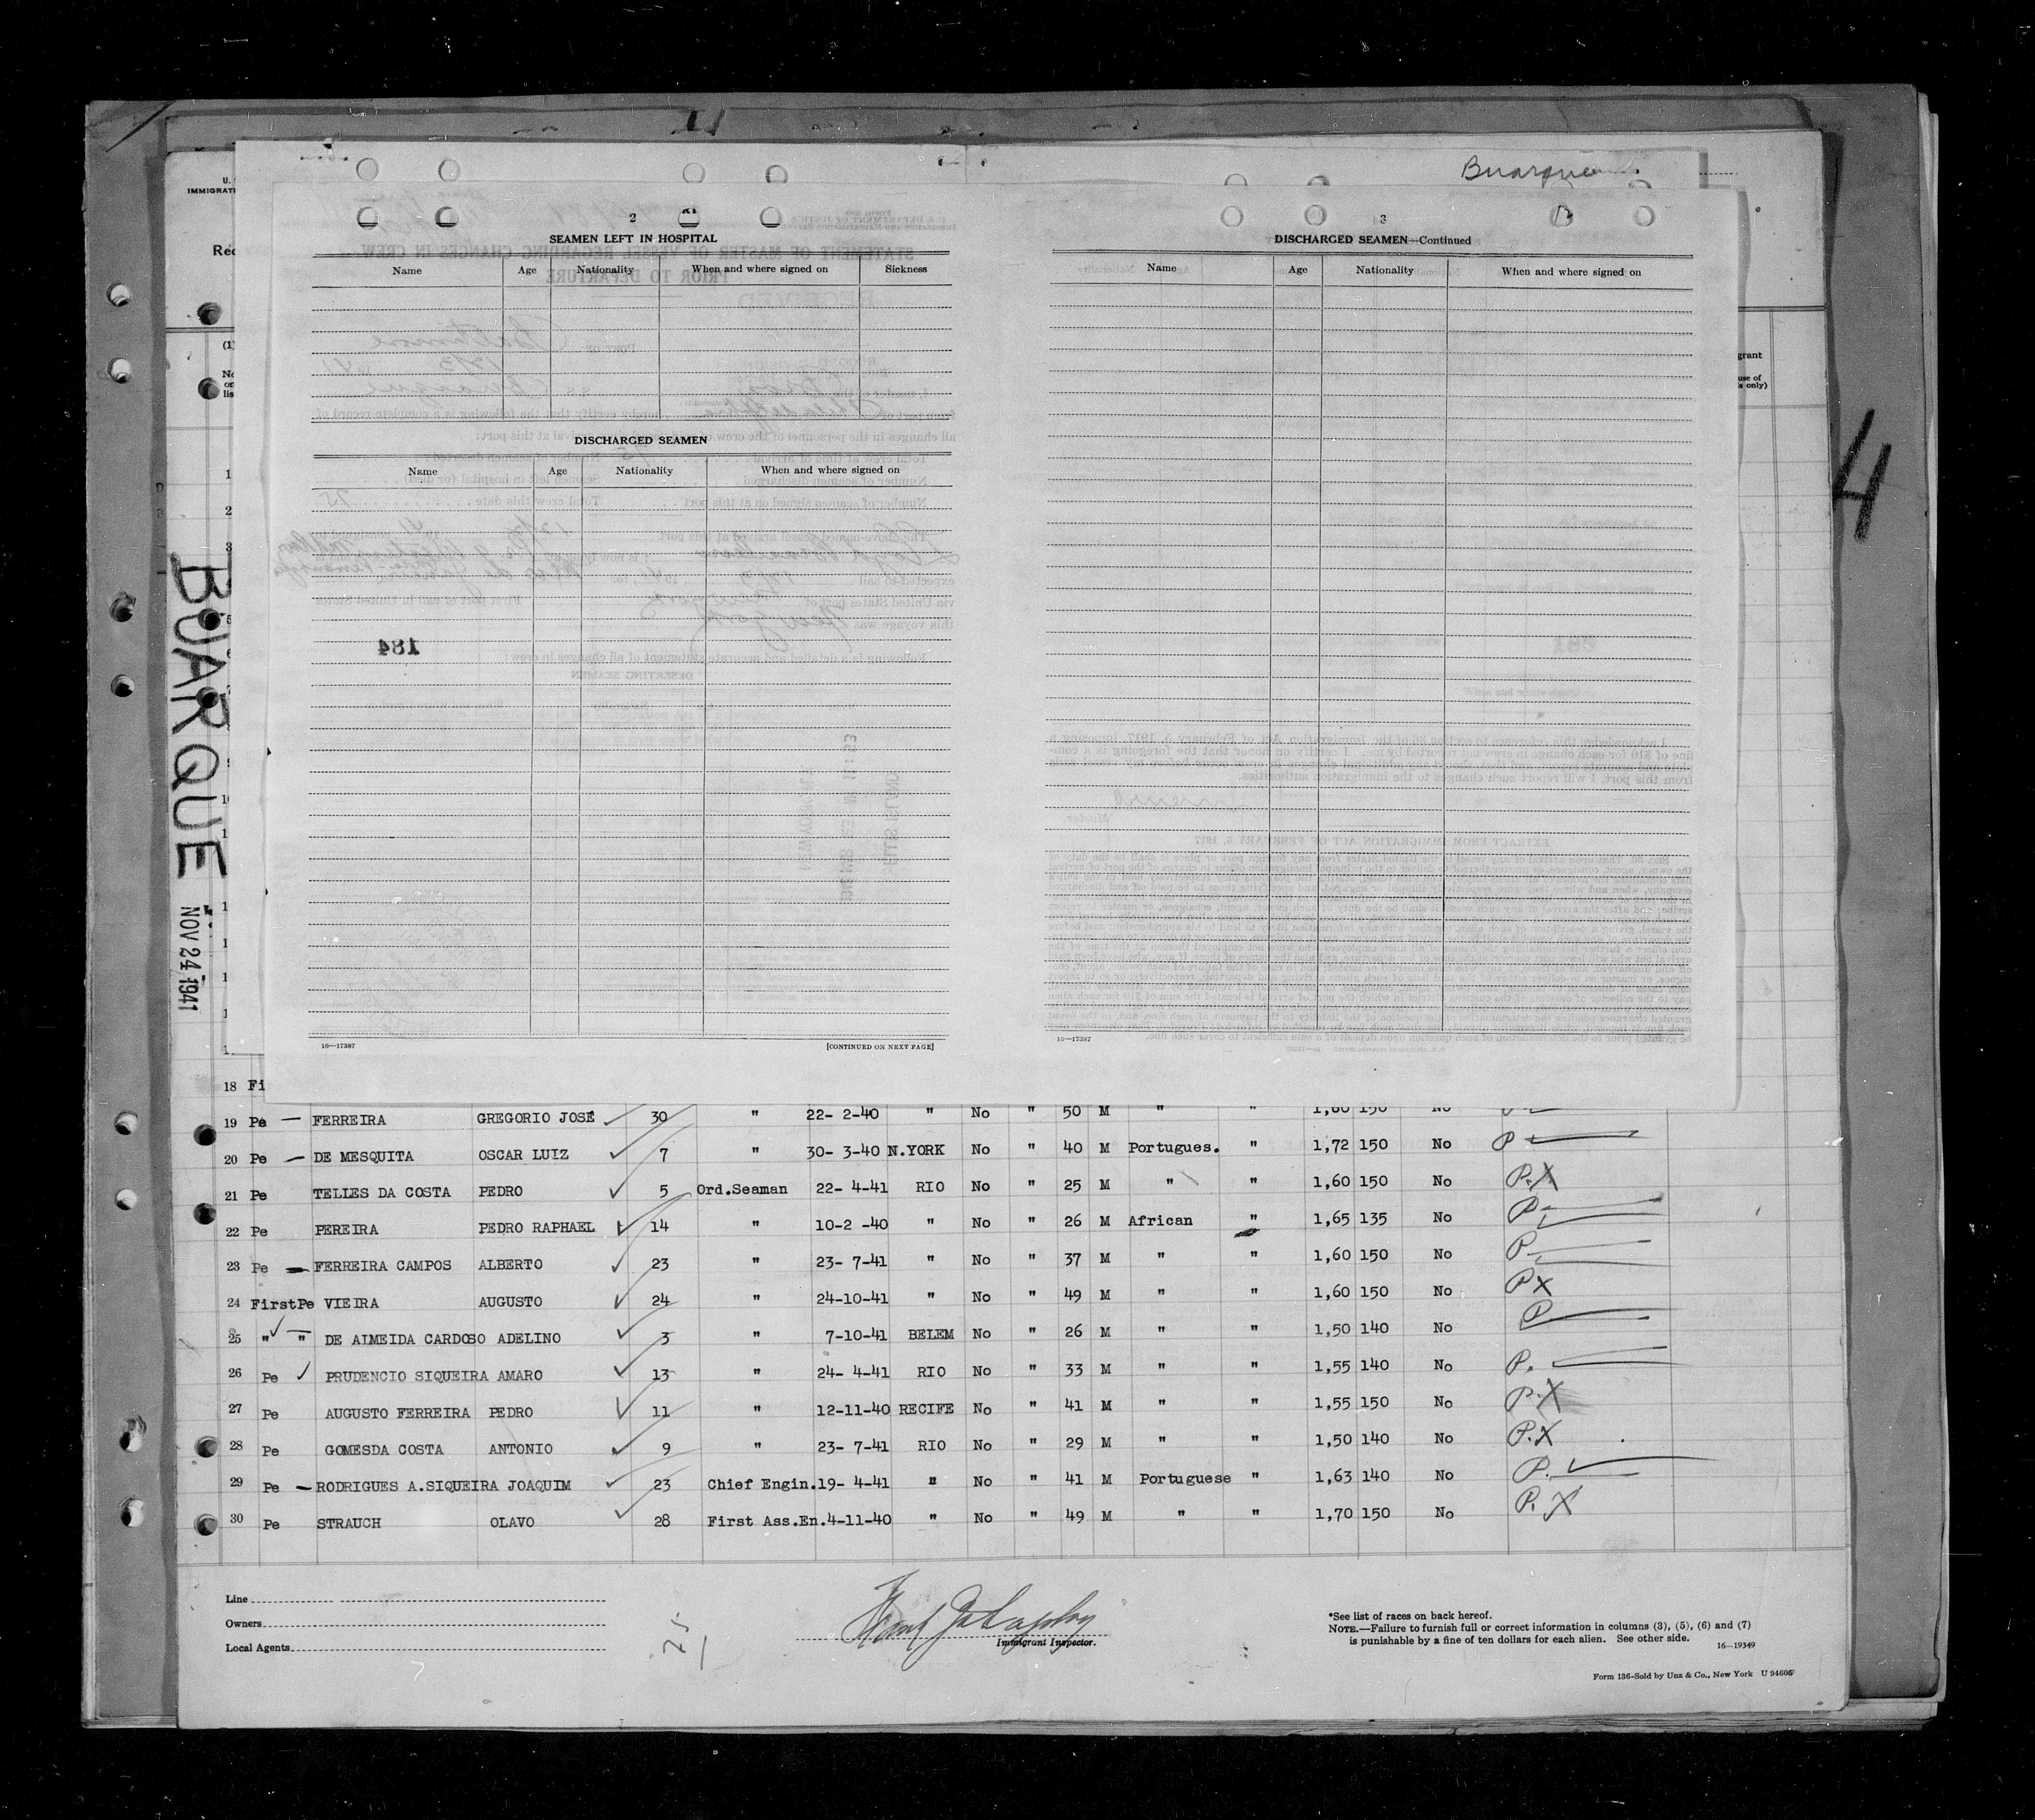 Buarque
U.
IMMIGRAT
Rec
2
SEAMEN LEFT IN HOSPITAL
Name Age Nationality When and where signed on Sickness
DISCHARGED SEAMEN
Name Age Nationality When and where signed on
184
16—17387 [CONTINUED ON NEXT PAGE]
3
DISCHARGED SEAMEN—Continued
Name Age Nationality When and where signed on
16—17387
grant
use of
s only)
4
(1)
No
on
lis
1
2
3
BUARQUE
NOV 24 1941
18 Fi
19 Pe — FERREIRA GREGORIO JOSE 30 " 22- 2-40 " No " 50 M " " 1,60 150 No
20 Pe — DE MESQUITA OSCAR LUIZ 7 " 30- 3-40 N.YORK No " 40 M Portugues. " 1,72 150 No P
21 Pe TELLES DA COSTA PEDRO 5 Ord.Seaman 22- 4-41 RIO No " 25 M " " 1,60 150 No P.X
22 Pe PEREIRA PEDRO RAPHAEL 14 " 10-2 -40 " No " 26 M African " 1,65 135 No P
23 Pe — FERREIRA CAMPOS ALBERTO 23 " 23- 7-41 " No " 37 M " " 1,60 150 No P
24 FirstPe VIEIRA AUGUSTO 24 " 24-10-41 " No " 49 M " " 1,60 150 No PX
25 " " DE ALMEIDA CARDOSO ADELINO 3 " 7-10-41 BELEM No " 26 M " " 1,50 140 No P
26 Pe PRUDENCIO SIQUEIRA AMARO 13 " 24- 4-41 RIO No " 33 M " " 1,55 140 No P.
27 Pe AUGUSTO FERREIRA PEDRO 11 " 12-11-40 RECIFE No " 41 M " " 1,55 150 No P.X
28 Pe GOMESDA COSTA ANTONIO 9 " 23- 7-41 RIO No " 29 M " " 1,50 140 No P.X
29 Pe — RODRIGUES A.SIQUEIRA JOAQUIM 23 Chief Engin. 19- 4-41 " No " 41 M Portuguese " 1,63 140 No P.
30 Pe STRAUCH OLAVO 28 First Ass.En. 4-11-40 " No " 49 M " " 1,70 150 No P. X
Line
Owners
Local Agents
Immigrant Inspector.
*See list of races on back hereof.
NOTE.—Failure to furnish full or correct information in columns (3), (5), (6) and (7)
is punishable by a fine of ten dollars for each alien. See other side. 16—19349
Form 136-Sold by Unz & Co., New York U 94605